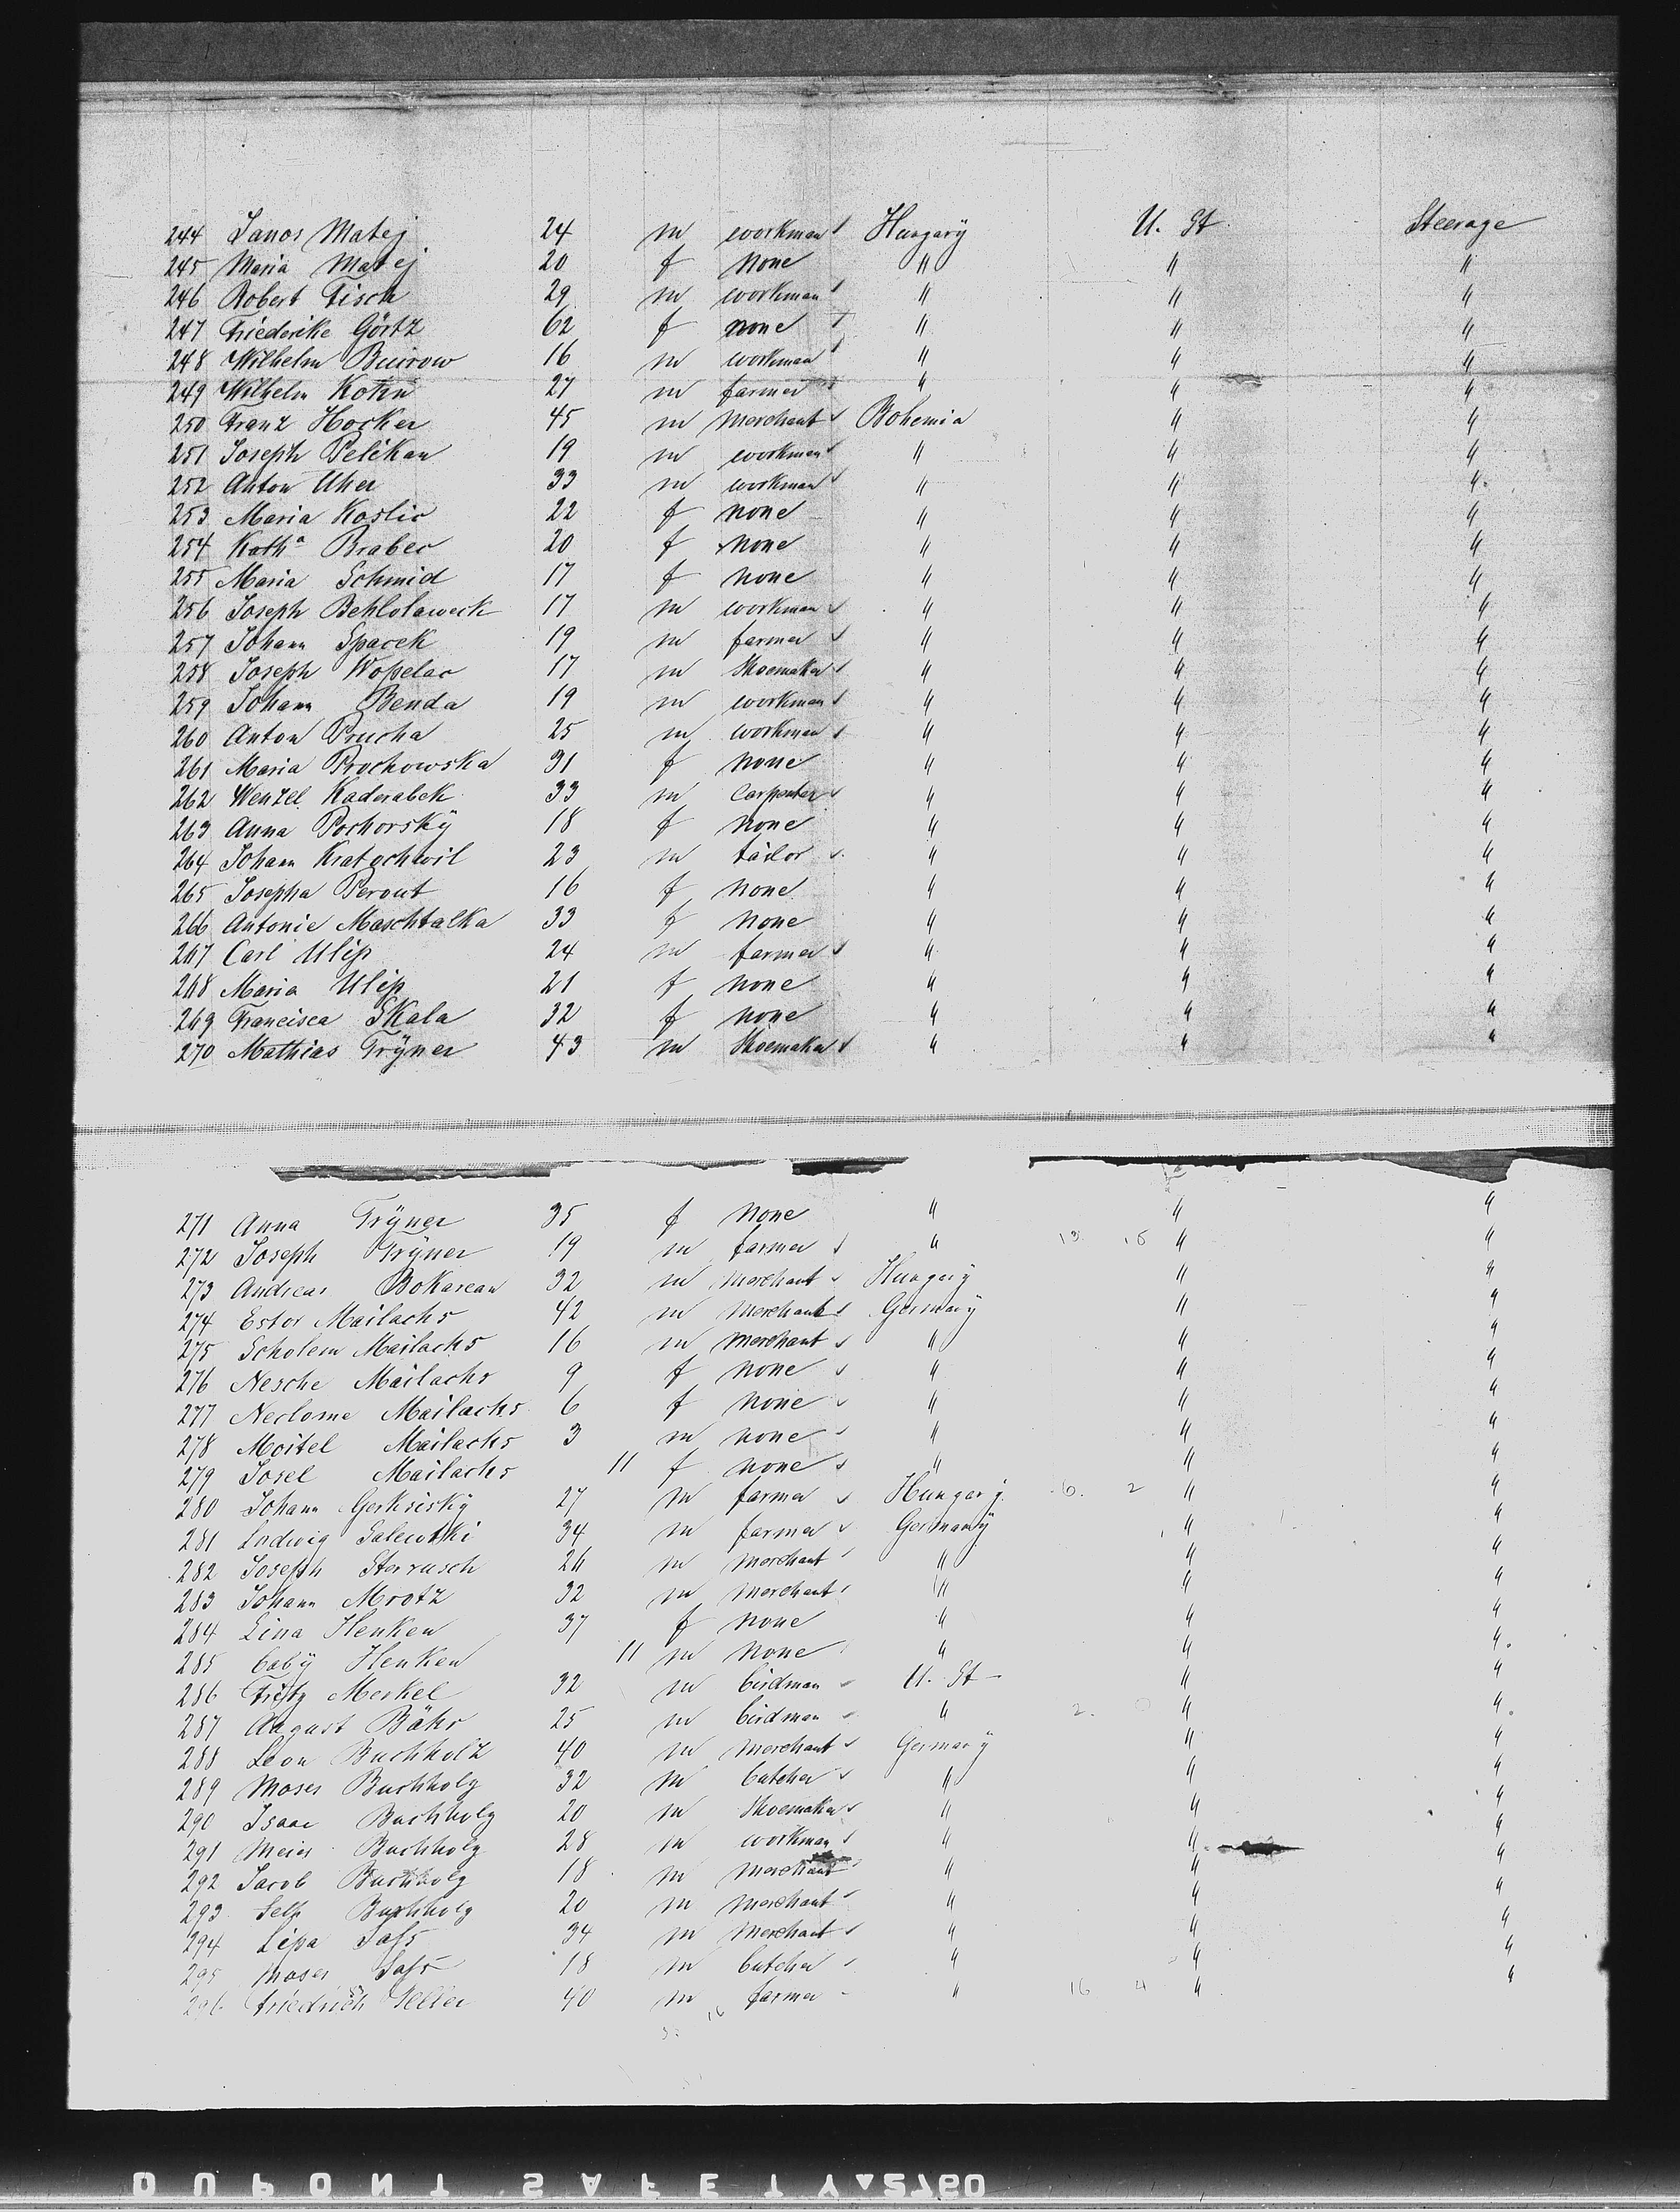 244 Janos Matej 24 m workman Hungarÿ U. St. Steerage
245 Maria Matej 20 f none " " "
246 Robert Fisch 29 m workman " " "
247 Friederike Görtz 62 f none " " "
248 Wilhelm Buirow 16 m workman " " "
249 Wilhelm Kotin 27 m farmer " " "
250 Franz Hocker 45 m merchant Bohemia " "
251 Joseph Pelikan 19 m workman " " "
252 Anton Uher 33 m workman " " "
253 Maria Kostic 22 f none " " "
254 Kathª Brabec 20 f none " " "
255 Maria Schmid 17 f none " " "
256 Joseph Behlolaweck 17 m workman " " "
257 Johann Spacek 19 m farmer " " "
258 Joseph Wopelac 17 m Shoemaker " " "
259 Johann Benda 19 m workman " " "
260 Anton Prucha 25 m workman " " "
261 Maria Prochowska 31 f none " " "
262 Wenzel Kaderabek 33 m Carpenter " " "
263 Anna Pochorskÿ 18 f none " " "
264 Johann Kratochwil 23 m tailor " " "
265 Josepha Perout 16 f none " " "
266 Antonie Maschtalka 33 f none " " "
267 Carl Ulip 24 m farmer " " "
268 Maria Ulip 21 f none " " "
269 Francisca Skala 32 f none " " "
270 Mathias Trÿner 43 m Shoemaker " " "
271 Anna Trÿner 35 f none " " "
272 Joseph Trÿner 19 m farmer " 13 15 " "
273 Andreas Bokarean 32 m merchant Hungarÿ " "
274 Ester Mailachs 42 m merchant Germanÿ " "
275 Scholem Mailachs 16 m merchant " " "
276 Nesche Mailachs 9 f none " " "
277 Neclome Mailachs 6 f none " " "
278 Moitel Mailachs 3 m none " " "
279 Josel Mailachs 11 f none " " "
280 Johann Gerkriskÿ 27 m farmer Hungarÿ 6. 2 " "
281 Ludwig Salewski 34 m farmer Germanÿ " "
282 Joseph Sterrusch 26 m merchant " " "
283 Johann Mrotz 32 m merchant " " "
284 Lina Henken 37 f none " " "
285 babÿ Henken 11 m none " " "
286 Fritz Merkel 32 m birdman U. St " "
287 August Bähr 25 m birdman " 2. 0 " "
288 Leon Buchholz 40 m merchant Germanÿ " "
289 Moses Buchholz 32 m butcher " " "
290 Isaac Buchholz 20 m Shoemaker " " "
291 Meier Buchholz 28 m workman " " "
292 Jacob Buchholz 18 m merchant " " "
293 Selly Buchholz 20 m merchant " " "
294 Lipa Sass 34 m merchant " " "
295 Moses Sass 18 m butcher " " "
296 Friedrich 40 m farmer " 16 4 " "
DUPONT SAFETY